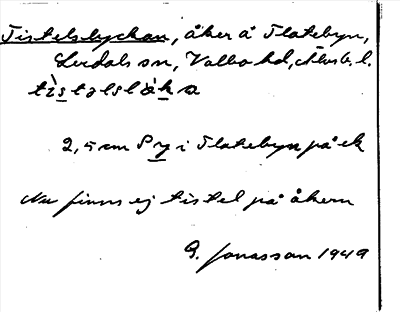 Tistelslyckan, åker å Slätebyn,
Lerdals sn, Valbo hd, Älvsb. l.
tìstəlslə̀kạ
2,5 cm S y i Slätebyn på ek
Nu finns ej tistel på åkern
G. Jonasson 1949